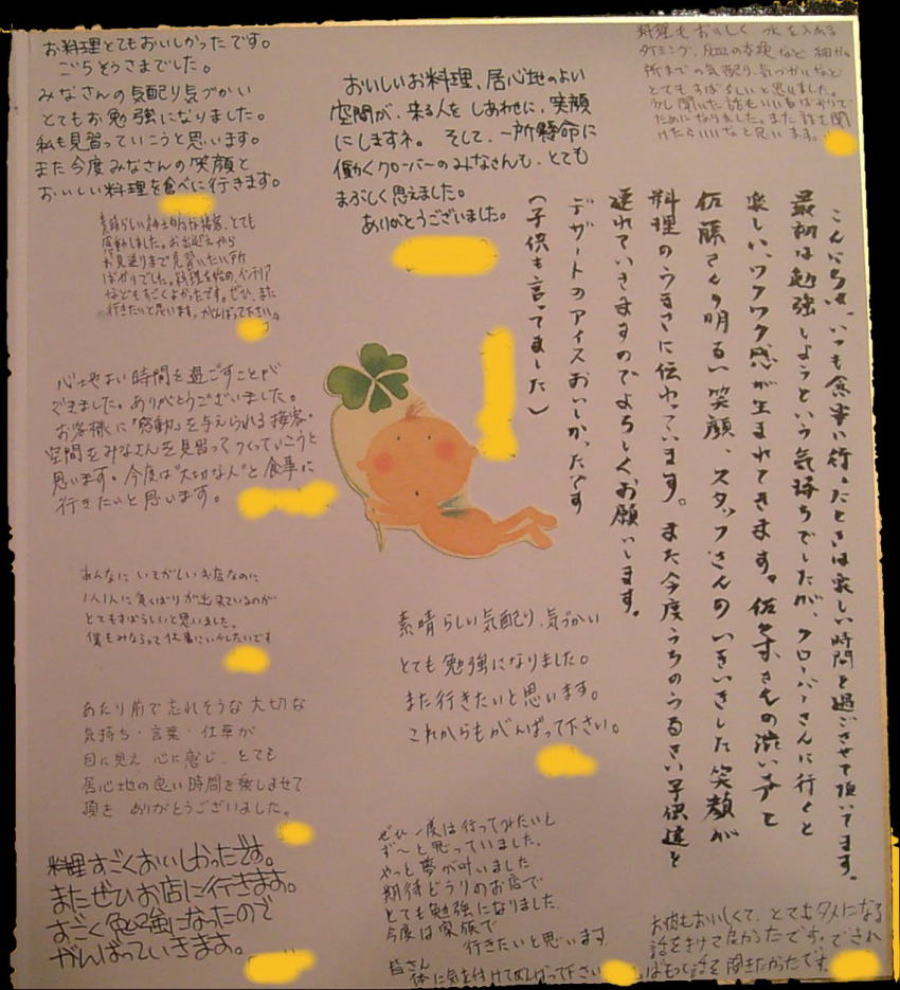 お料理とてもおいしかったです。
ごちそうさまでした。
みなさんの気配り気づかい
とてもお勉強になりました。
私も見習っていこうと思います。
また今度みなさんの笑顔と
おいしい料理を食べに行きます。
おいしいお料理、居心地のよい
空間が、来る人をしあわせに、笑顔
にしますネ。そして、一所懸命に
働くクローバーのみなさんも、とても
まぶしく思えました。
ありがとうございました。
料理もおいしく、水を入れる
タイミング、お皿の交換など細かい
所までの気配り、気づかいなど
とてもすばらしいと思いました。
少し聞いた話もいい話ばかりで
ためになりました。また話を聞
けたらいいなと思います。
素晴らしい紳士的な接客、とても
感動しました。お出迎えから
お見送りまで見習いたい所
ばかりでした。料理を始め、インテリア
などもすごくよかったです。ぜひ、また
行きたいと思います。がんばって下さい。
こんにちは。いつも食事に行ったときは楽しい時間を過ごさせて頂いてます。
最初は勉強しようという気持ちでしたが、クローバーさんに行くと
楽しい、ワクワク感が生まれてきます。佐々木さんの渋い声と
佐藤さんの明るい笑顔、スタッフさんのいきいきした笑顔が
料理のうまさに伝わっています。また今度うちのうるさい子供達と
連れていきますのでよろしくお願いします。
デザートのアイスおいしかったです
(子供も言ってました)
心地よい時間を過ごすことが
できました。ありがとうございました。
お客様に「感動」を与えられる接客・
空間をみなさんを見習ってつくっていこうと
思います。今度は"大切な人"と食事に
行きたいと思います。
あんなにいそがしいお店なのに
1人1人に気くばりが出来ているのが
とてもすばらしいと思いました。
僕もみならって仕事にいかしたいです
素晴らしい気配り、気づかい
とても勉強になりました。
また行きたいと思います。
これからもがんばって下さい。
あたり前で忘れそうな大切な
気持ち・言葉・仕草が
目に見え心に感じ、とても
居心地の良い時間を楽しませて
頂き ありがとうございました。
料理すごくおいしかったです。
またぜひお店に行きます。
すごく勉強になったので
がんばっていきます。
ぜひ一度は行ってみたいと
ず〜と思っていました。
やっと夢が叶いました
期待どうりのお店で
とても勉強になりました。
今度は家族で
行きたいと思います
皆さん
体に気を付けてがんばって下さい
お肉もおいしくて、とてもタメになる
話をきけて良かったです。できれ
ばもっと話を聞きたかったです。